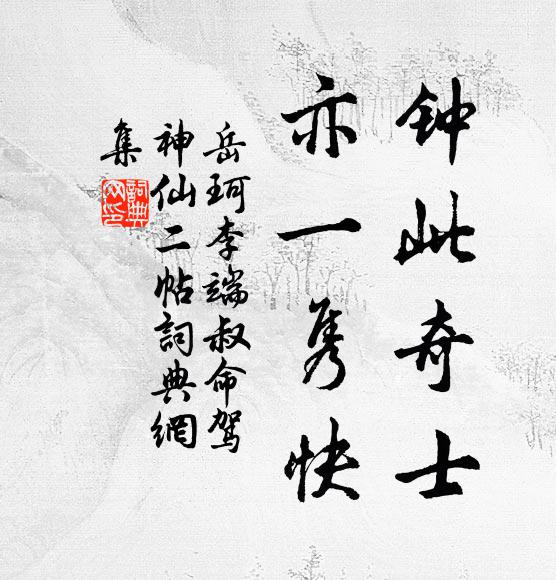 钟此奇士
亦一隽快
岳珂李端叔命驾
神仙二帖詞典網
集
詞典
网印